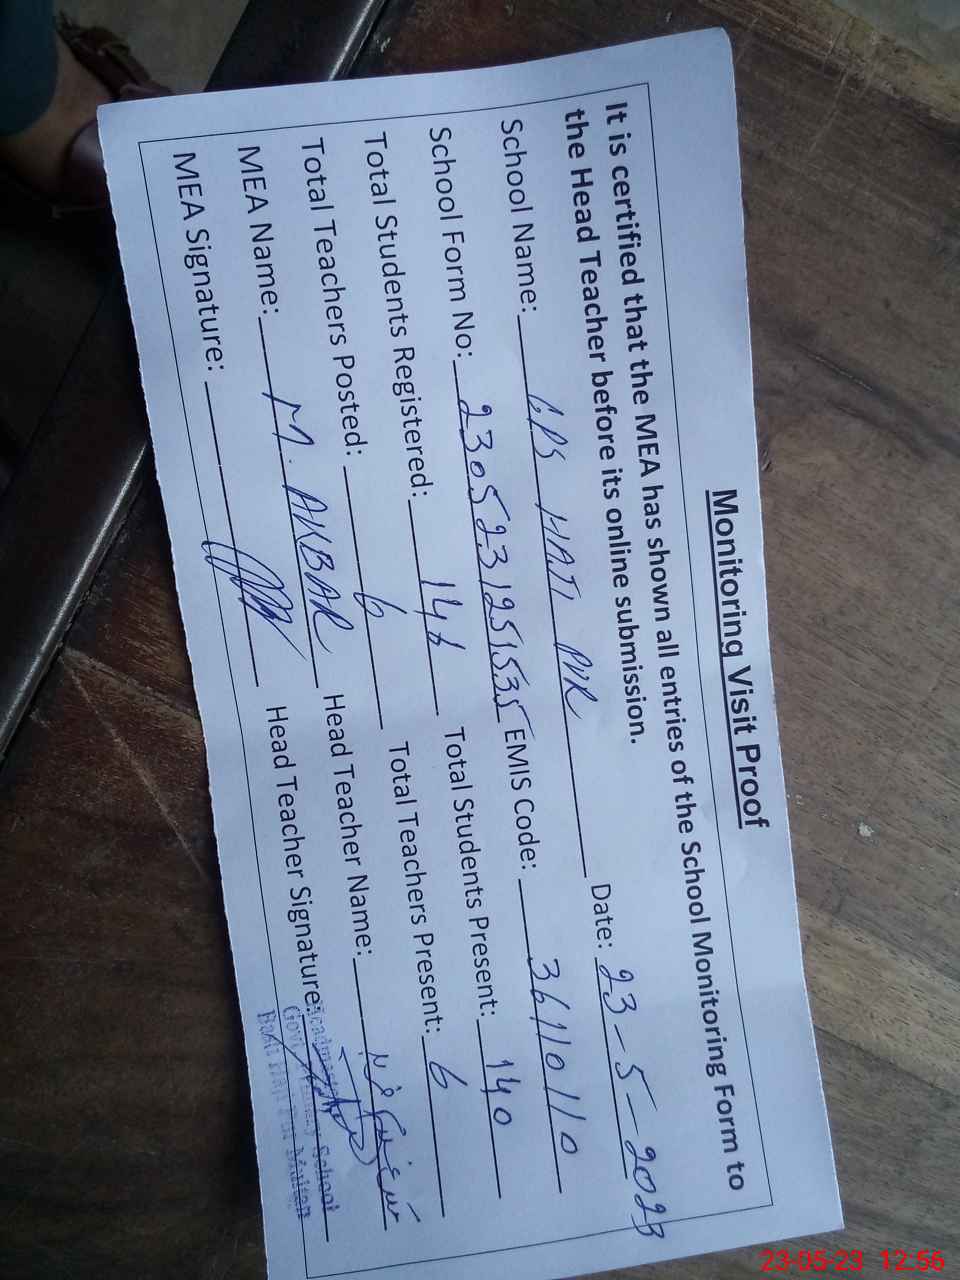 Monitoring Visit Proof
It is certified that the MEA has shown all entries of the School Monitoring Form to
the Head Teacher before its online submission.
School Name: GPS HAJI PUR Date: 23-5-2023
School Form No: 23052312515335 EMIS Code: 36110110
Total Students Registered: 146 Total Students Present: 140
Total Teachers Posted: 6 Total Teachers Present: 6
MEA Name: M. AKBAR Head Teacher Name:
MEA Signature: Head Teacher Signature:
School
Multan
23-05-23 12:56